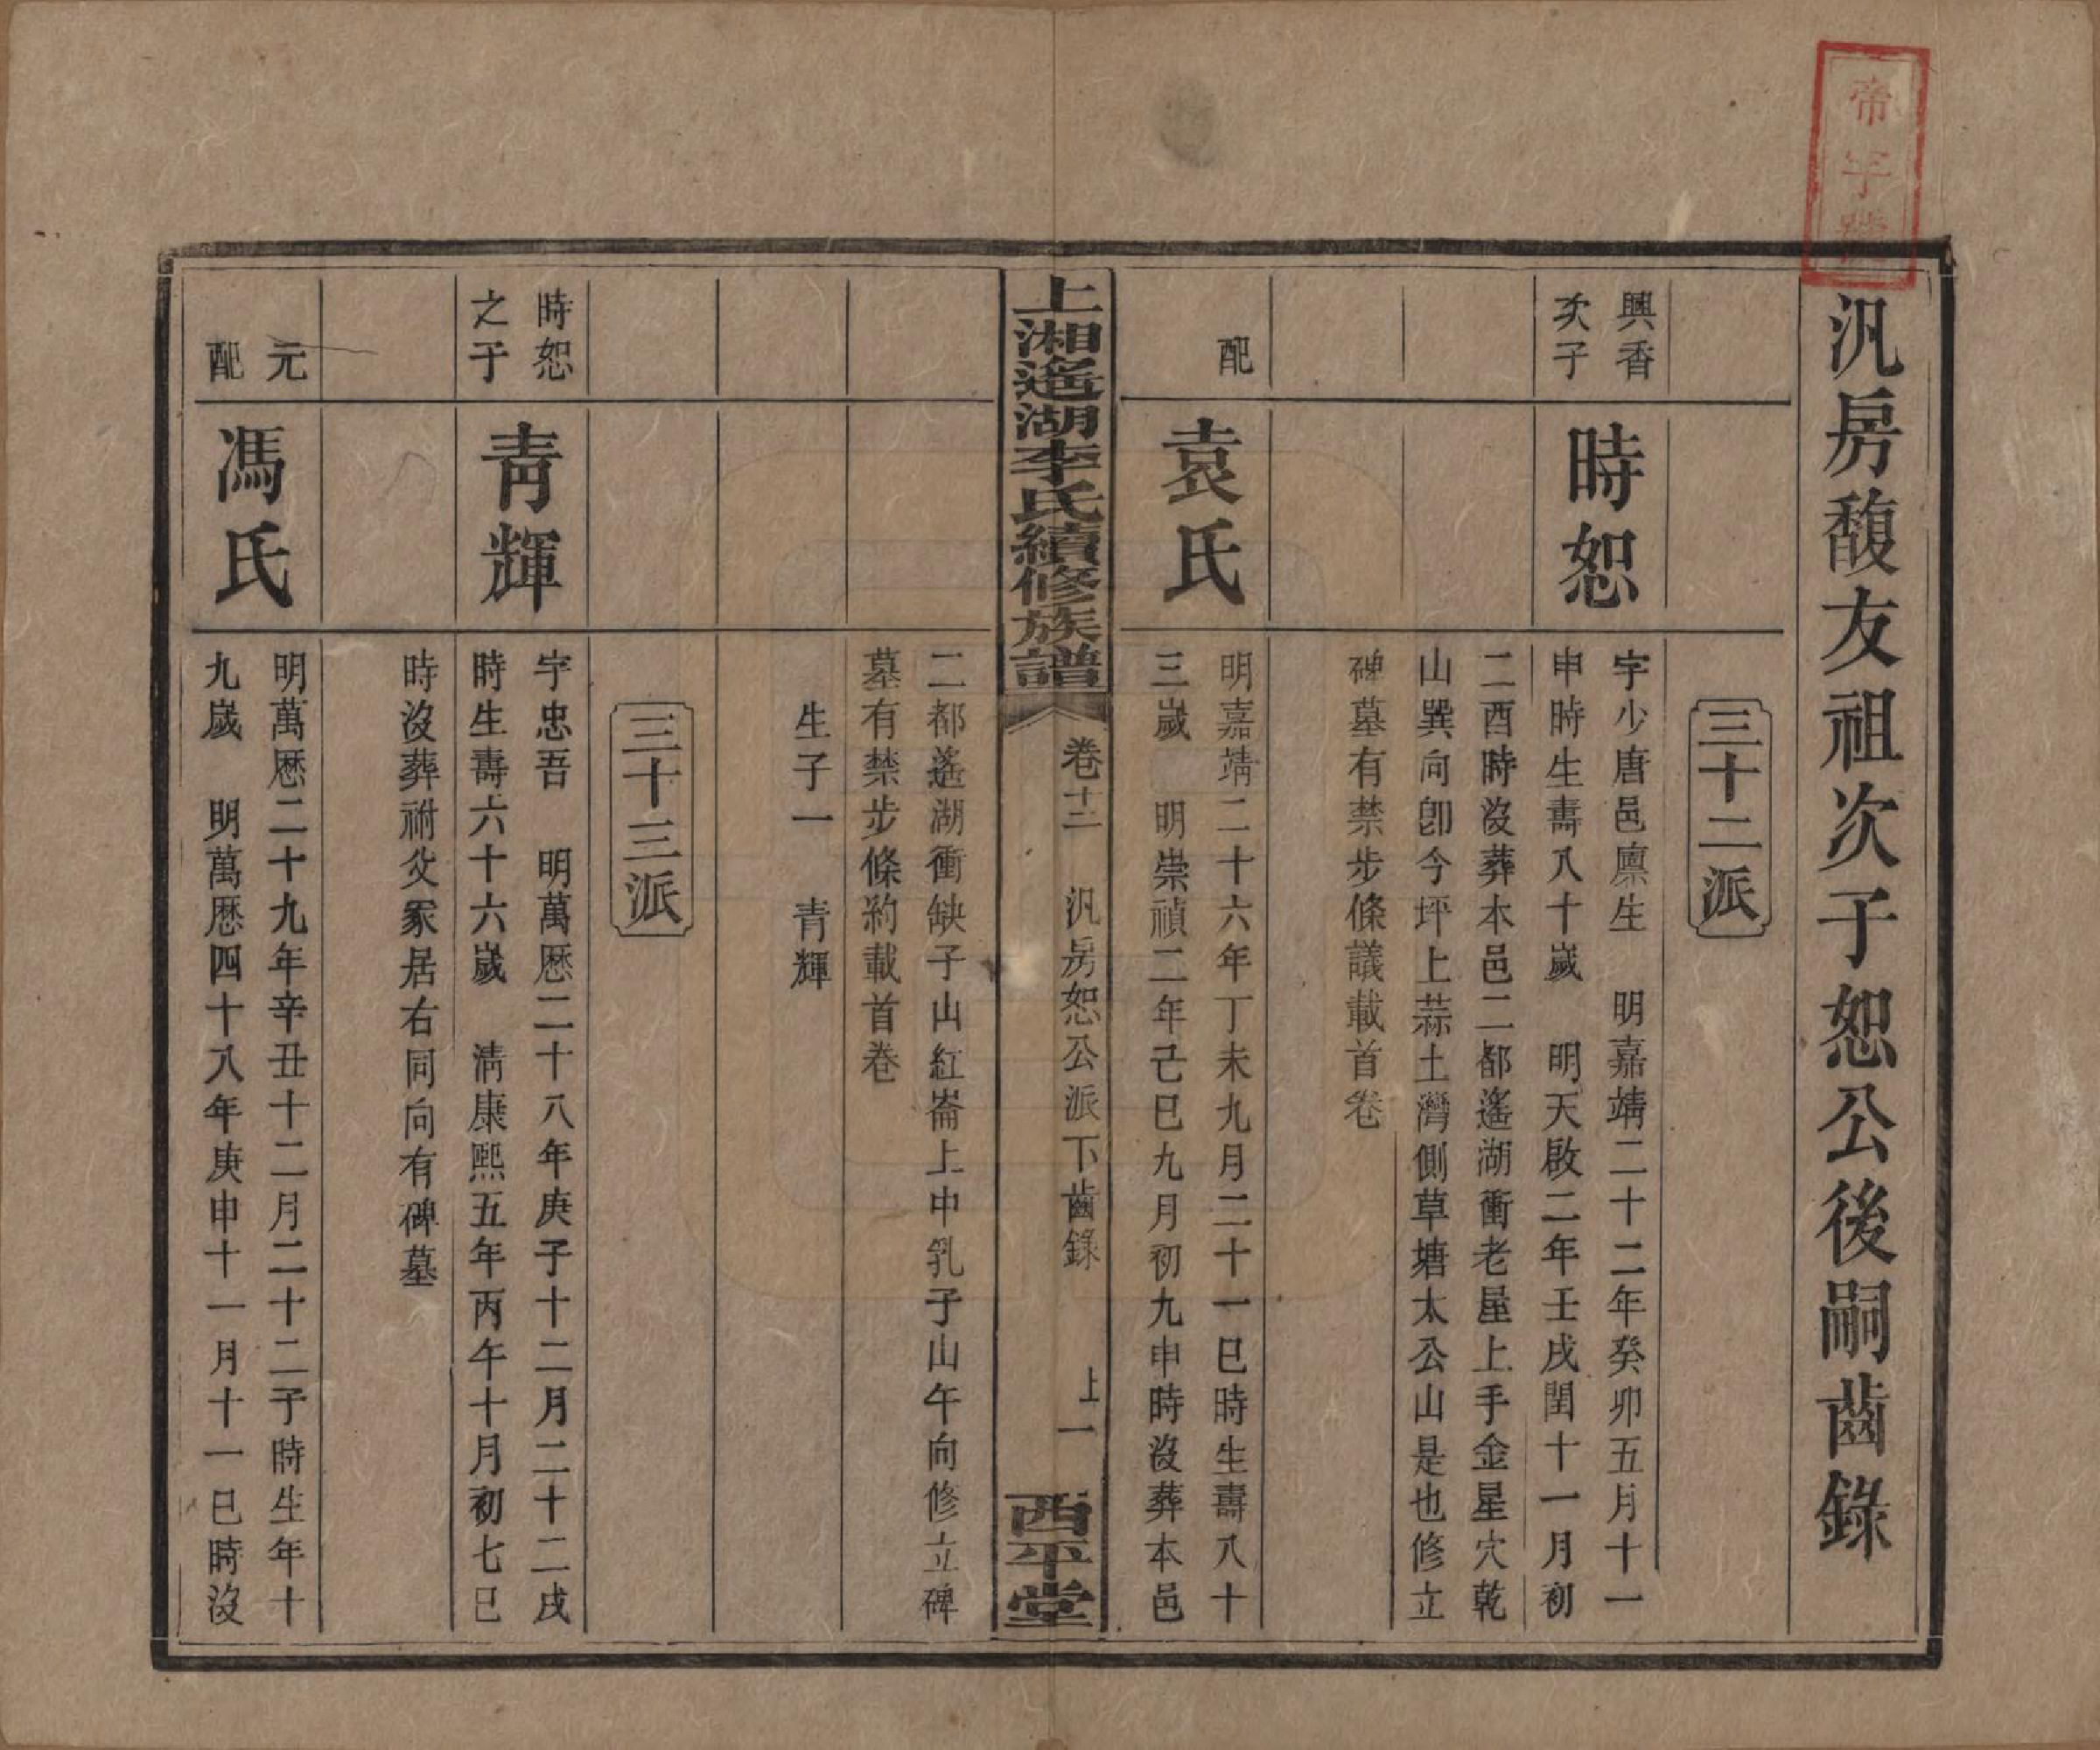 帝字號
汎房馥友祖次子恕公後嗣齒錄
三十二派
興香
次子
時恕
字少唐邑廪生　明嘉靖二十二年癸卯五月十一
申時生壽八十歲　明天啟二年壬戌閏十一月初
二酉時沒葬本邑二都遙湖衝老屋上手金星穴乾
山巽向卽今坪上蒜土灣側草塘太公山是也修立
碑墓有禁步條議載首卷
配
袁氏
明嘉靖二十六年丁未九月二十一巳時生壽八十
三歲　明崇禎二年己巳九月初九申時沒葬本邑
上湘遙湖李氏續修族譜
卷十二　汎房恕公派下齒錄
上一
西平堂
二都遙湖衝缺子山紅崙上中乳子山午向修立碑
墓有禁步條約載首卷
生子一　青輝
三十三派
時恕
之子
青輝
字忠吾　明萬厯二十八年庚子十二月二十二戌
時生壽六十六歲　清康熙五年丙午十月初七巳
時沒葬祔父冢居右同向有碑墓
元
配
馮氏
明萬厯二十九年辛丑十二月二十二子時生年十
九歲　明萬厯四十八年庚申十一月十一巳時沒